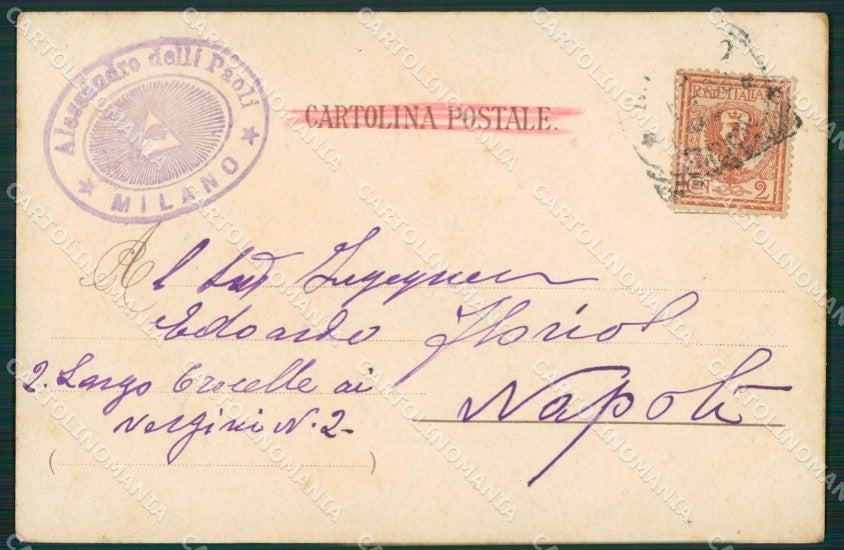 Alessandro delli Paoli
★ MILANO ★
CARTOLINA POSTALE.
POSTE ITALIANE
CEN 2
Al Ingegnere
Edoardo
Napoli
2. Largo Crocelle ai
Vergini N. 2-
( )
CARTOLINOMANIA